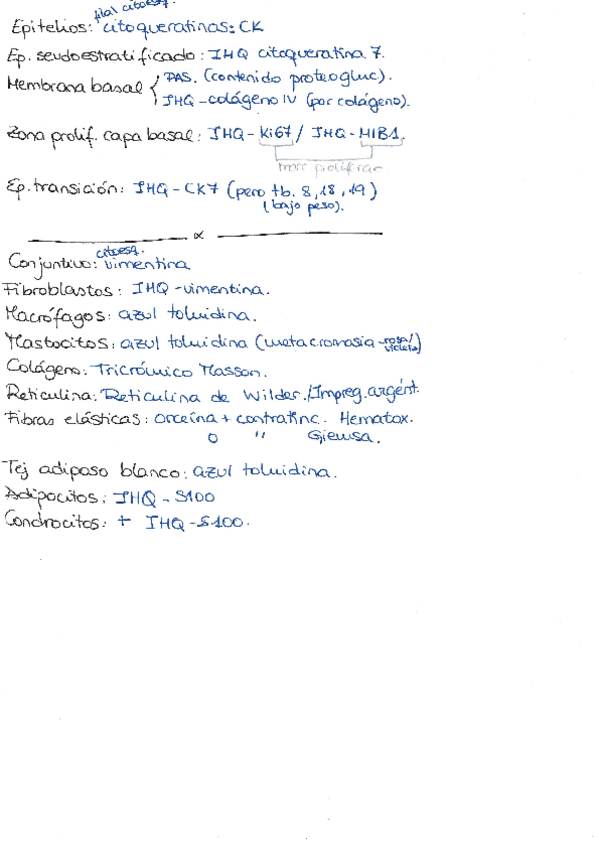 filal citoesq.
Epitelios: citoqueratinas: CK
Ep. seudoestratificado: IHQ citoqueratina 7.
Membrana basal { PAS. (contenido proteogluc).
IHQ-colágeno IV (por colágeno).
Zona prolif. capa basal: IHQ-Ki67 / IHQ-MIB1.
Ep. transición: IHQ-CK7 (pero tb. 8, 18, 19)
(bajo peso).
citoesq.
Conjuntivo: vimentina
Fibroblastos: IHQ-vimentina.
Macrófagos: azul toluidina.
Mastocitos: azul toluidina (metacromasia-rosa/violeta)
Colágeno: Tricrómico Masson.
Reticulina: Reticulina de Wilder./Impreg. argént.
Fibras elásticas: orceína + contratinc. Hematox.
o " Giemsa.
Tej adiposo blanco: azul toluidina.
Adipocitos: IHQ-S100
Condrocitos: + IHQ-S100.